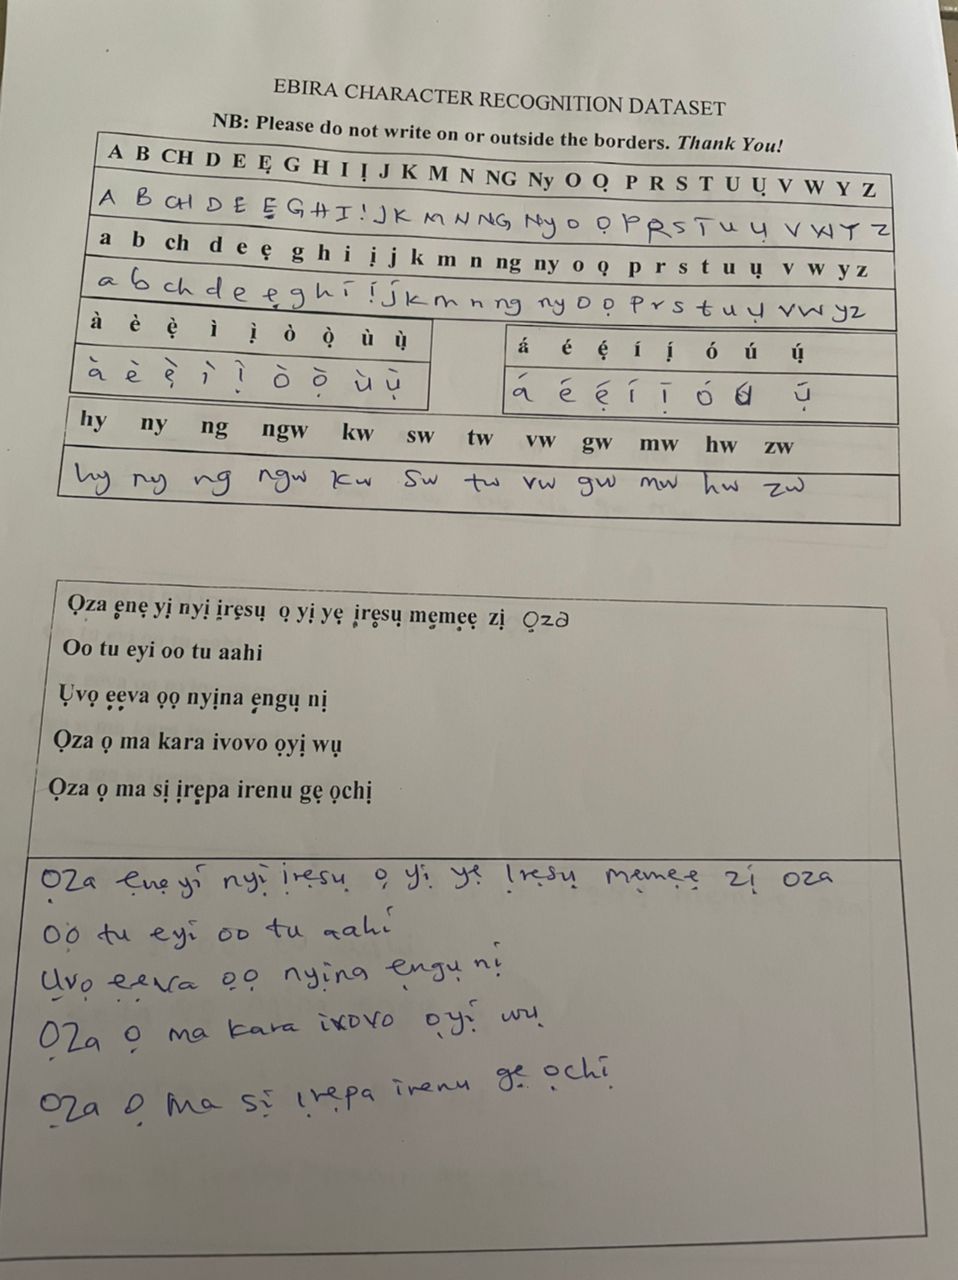 EBIRA CHARACTER RECOGNITION DATASET
NB: Please do not write on or outside the borders. Thank You!
A B CH D E Ẹ G H I Ị J K M N NG Ny O Ọ P R S T U Ụ V W Y Z
A B CH D E Ẹ G H I Ị J K M N NG Ny O Ọ P R S T U Ụ V W Y Z
a b ch d e ẹ g h i ị j k m n ng ny o ọ p r s t u ụ v w y z
a b ch d e ẹ g h i ị j k m n ng ny o ọ p r s t u ụ v w y z
à è ẹ̀ ì ị̀ ò ọ̀ ù ụ̀
á é ẹ́ í ị́ ó ú ụ́
à è ẹ̀ ì ị̀ ò ọ̀ ù ụ̀
á é ẹ́ í ị́ ó ú ụ́
hy ny ng ngw kw sw tw vw gw mw hw zw
hy ny ng ngw kw sw tw vw gw mw hw zw
Ọza ẹnẹ yị nyị ịrẹsụ ọ yị yẹ ịrẹsụ mẹmẹẹ zị Ọza
Oo tu eyi oo tu aahi
Ụvọ ẹẹva ọọ nyịna ẹngụ nị
Ọza ọ ma kara ivovo ọyị wụ
Ọza ọ ma sị ịrẹpa irenu gẹ ọchị
Ọza ẹnẹ yị nyị ịrẹsụ ọ yị yẹ ịrẹsụ mẹmẹẹ zị oza
Oọ tu eyi oo tu aahi
Ụvọ ẹẹva ọọ nyịna ẹngụ nị
Ọza ọ ma kara ivovo ọyí wụ
Ọza ọ ma sị ịrẹpa irenu gẹ ọchị